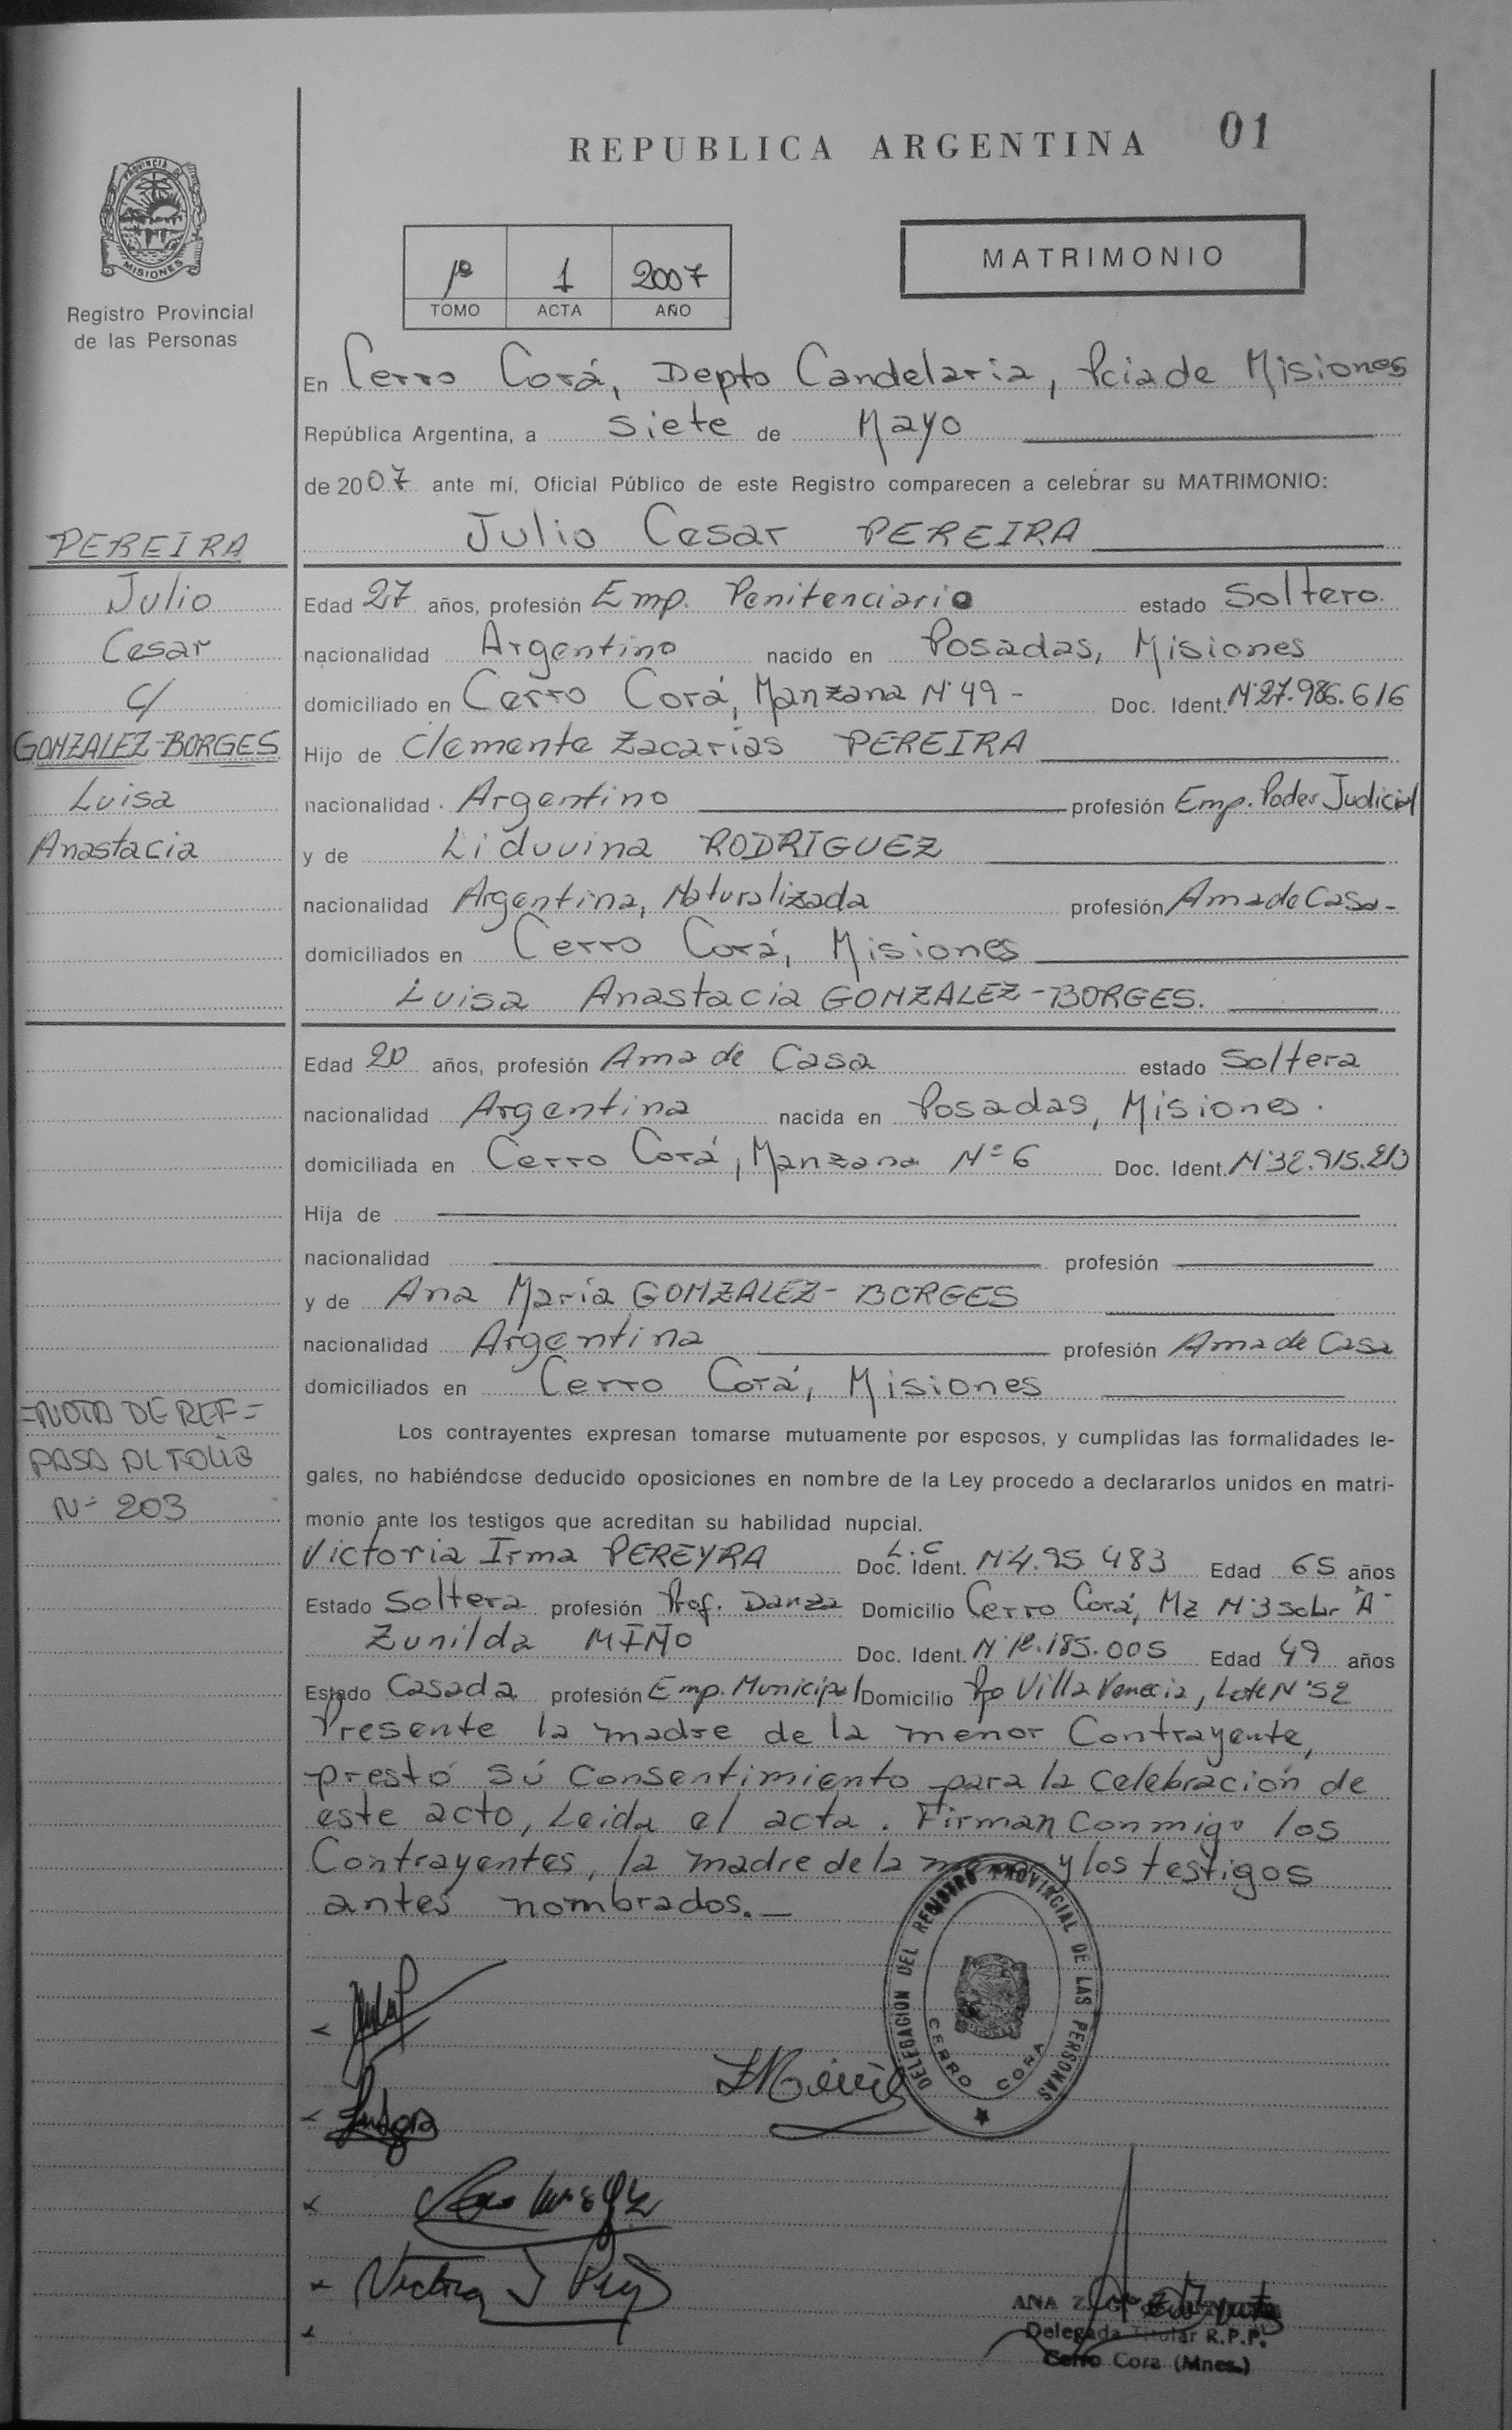 REPUBLICA ARGENTINA 01
PROVINCIA DE
MISIONES
Registro Provincial
de las Personas
1º 1 2007
TOMO ACTA AÑO
MATRIMONIO
En Cerro Corá, Depto Candelaria, Pcia de Misiones
República Argentina, a siete de Mayo
de 2007 ante mí, Oficial Público de este Registro comparecen a celebrar su MATRIMONIO:
Julio Cesar PEREIRA
PEREIRA
Julio
Cesar
c/
GONZALEZ-BORGES
Luisa
Anastacia
Edad 27 años, profesión Emp. Penitenciario estado Soltero.
nacionalidad Argentino nacido en Posadas, Misiones
domiciliado en Cerro Corá, Manzana Nº 49 - Doc. Ident. Nº 27.986.616
Hijo de Clemente Zacarias PEREIRA
nacionalidad Argentino profesión Emp. Poder Judicial
y de Liduvina RODRIGUEZ
nacionalidad Argentina, Naturalizada profesión Ama de Casa-
domiciliados en Cerro Corá, Misiones
Luisa Anastacia GONZALEZ-BORGES.
Edad 20 años, profesión Ama de Casa estado Soltera
nacionalidad Argentina nacida en Posadas, Misiones.
domiciliada en Cerro Corá, Manzana Nº 6 Doc. Ident. Nº 32.915.213
Hija de
nacionalidad profesión
y de Ana María GONZALEZ-BORGES
nacionalidad Argentina profesión Ama de Casa
domiciliados en Cerro Corá, Misiones
=NOTA DE REF=
PASA AL FOLIO
Nº 203
Los contrayentes expresan tomarse mutuamente por esposos, y cumplidas las formalidades le-
gales, no habiéndose deducido oposiciones en nombre de la Ley procedo a declararlos unidos en matri-
monio ante los testigos que acreditan su habilidad nupcial.
Victoria Irma PEREYRA L.C Doc. Ident. Nº 4.95 483 Edad 65 años
Estado Soltera profesión Prof. Danza Domicilio Cerro Corá, Mz Nº 3 Solar "A"
Zunilda MIÑO Doc. Ident. Nº 12.185.005 Edad 49 años
Estado Casada profesión Emp. Municipal Domicilio Bo Villa Venecia, Lote Nº 52
Presente la madre de la menor Contrayente,
prestó sú Consentimiento para la celebración de
este acto, Leida el acta. Firman Conmigo los
Contrayentes, la madre de la menor y los testigos
antes nombrados.-
DELEGACION DEL REGISTRO PROVINCIAL DE LAS PERSONAS
CERRO CORA
ANA
Delegada Titular R.P.P.
Cerro Cora (Mnes.)